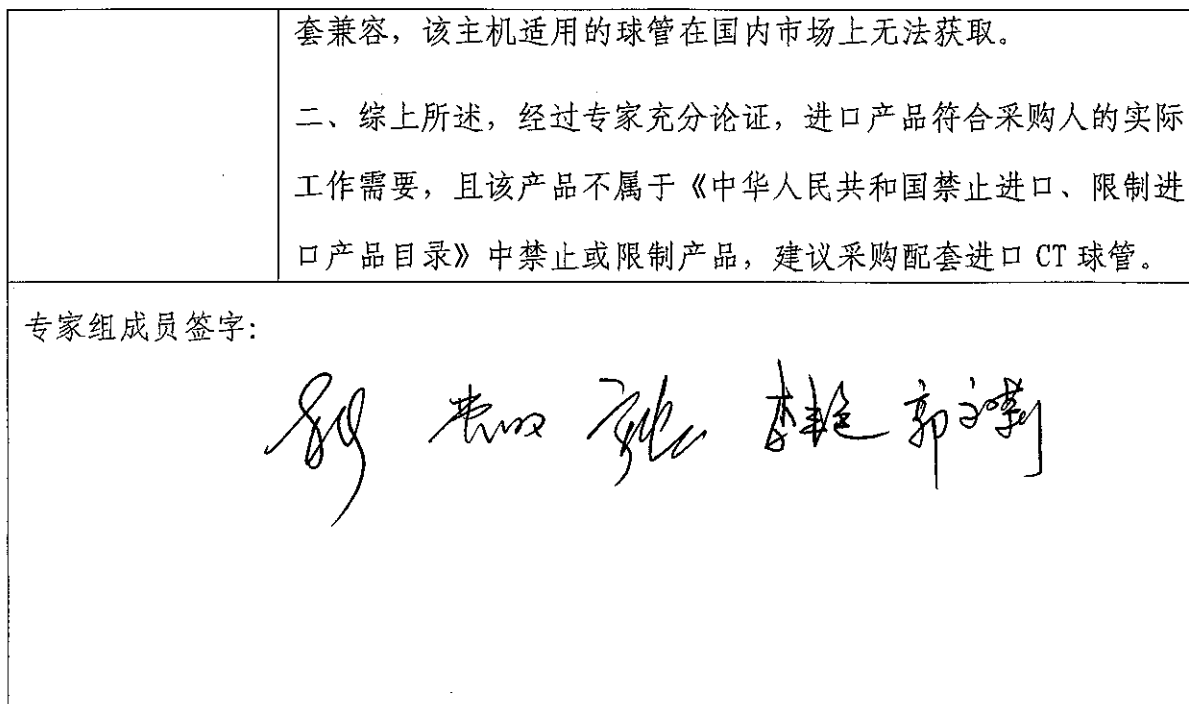 套兼容，该主机适用的球管在国内市场上无法获取。
二、综上所述，经过专家充分论证，进口产品符合采购人的实际
工作需要，且该产品不属于《中华人民共和国禁止进口、限制进
口产品目录》中禁止或限制产品，建议采购配套进口 CT 球管。
专家组成员签字：